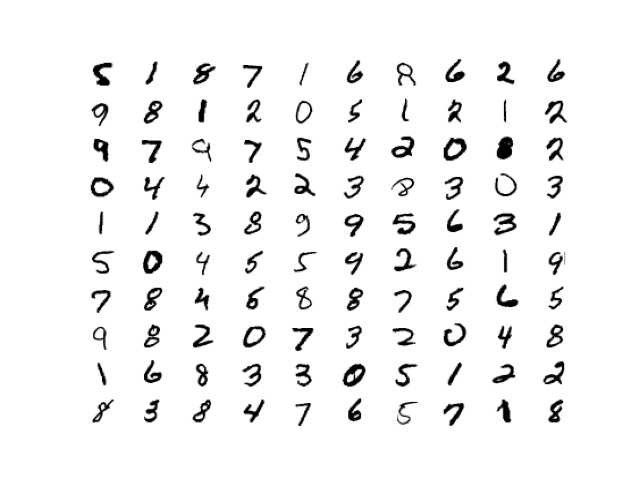 5 1 8 7 1 6 8 6 2 6
9 8 1 2 0 5 1 2 1 2
9 7 9 7 5 4 2 0 8 2
0 4 4 2 2 3 8 3 0 3
1 1 3 8 9 9 5 6 3 1
5 0 4 5 5 9 2 6 1 9
7 8 4 6 8 8 7 5 6 5
9 8 2 0 7 3 2 0 4 8
1 6 8 3 3 0 5 1 2 2
8 3 8 4 7 6 5 7 1 8